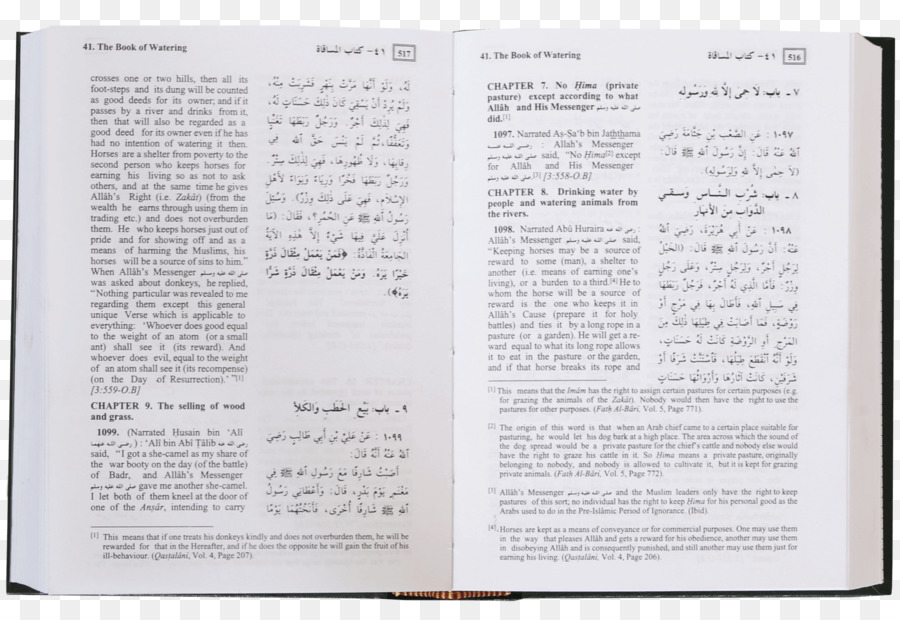 41. The Book of Watering
٤١ – كتاب المساقاة
516
CHAPTER 7. No Ḥima (private
pasture) except according to what
Allâh and His Messenger صلى الله عليه وسلم
did.[1]
1097. Narrated Aṣ-Ṣa‘b bin Jaththama
رضي الله عنه : Allah's Messenger
صلى الله عليه وسلم said, “No Ḥima[2] except
for Allâh and His Messenger
صلى الله عليه وسلم.[3] [3:558-O.B]
CHAPTER 8. Drinking water by
people and watering animals from
the rivers.
1098. Narrated Abû Huraira رضي الله عنه :
Allâh's Messenger صلى الله عليه وسلم said,
“Keeping horses may be a source of
reward to some (man), a shelter to
another (i.e. means of earning one's
living), or a burden to a third.[4] He to
whom the horse will be a source of
reward is the one who keeps it in
Allâh's Cause (prepare it for holy
battles) and ties it by a long rope in a
pasture (or a garden). He will get a re-
ward equal to what its long rope allows
it to eat in the pasture or the garden,
and if that horse breaks its rope and
٧ – باب: لا حِمى إلَّا لله وَرَسُولِه
١٠٩٧ : عَنِ الصَّعْبِ بْنِ جَثَّامَةَ رَضِيَ
اللهُ عَنْهُ قَالَ: إِنَّ رَسُولَ اللهِ ﷺ قَالَ:
(لَا حِمَى إِلَّا لِلهِ وَلِرَسُولِهِ).
٨ – باب: شُرْب النَّاس وَسقي
الدَّوَابّ مِنَ الأنهَار
١٠٩٨ : عَنْ أَبِي هُرَيْرَةَ، رَضِيَ اللهُ
عَنْهُ: أَنَّ رَسُولَ اللهِ ﷺ قَالَ: (الْخَيْلُ
لِرَجُلٍ أَجْرٌ، وَلِرَجُلٍ سِتْرٌ، وَعَلَى رَجُلٍ
وِزْرٌ: فَأَمَّا الَّذِي لَهُ أَجْرٌ، فَرَجُلٌ رَبَطَهَا
فِي سَبِيلِ اللهِ، فَأَطَالَ بِهَا فِي مَرْجٍ أَوْ
رَوْضَةٍ، فَمَا أَصَابَتْ فِي طِيَلِهَا ذَلِكَ مِنَ
المَرْجِ أَوِ الرَّوْضَةِ كَانَتْ لَهُ حَسَنَاتٍ،
وَلَوْ أَنَّهُ انْقَطَعَ طِيَلُهَا، فَاسْتَنَّتْ شَرَفًا أَوْ
شَرَفَيْنِ، كَانَتْ آثَارُهَا وَأَرْوَاثُهَا حَسَنَاتٍ
[1] This means that the Imâm has the right to assign certain pastures for certain purposes (e.g.
for grazing the animals of the Zakât). Nobody would then have the right to use the
pastures for other purposes. (Fath Al-Bâri, Vol. 5, Page 771).
[2] The origin of this word is that when an Arab chief came to a certain place suitable for
pasturing, he would let his dog bark at a high place. The area across which the sound of
the dog spread would be a private pasture for the chief's cattle and nobody else would
have the right to graze his cattle in it. So Ḥima means a private pasture, originally
belonging to nobody, and nobody is allowed to cultivate it, but it is kept for grazing
private animals. (Fath Al-Bâri, Vol. 5, Page 772).
[3] Allâh's Messenger صلى الله عليه وسلم and the Muslim leaders only have the right to keep
pastures of this sort; no individual has the right to keep Ḥima for his personal good as the
Arabs used to do in the Pre-Islâmic Period of Ignorance. (Ibid).
[4] Horses are kept as a means of conveyance or for commercial purposes. One may use them
in the way that pleases Allâh and gets a reward for his obedience, another may use them
in disobeying Allâh and is consequently punished, and still another may use them just for
earning his living. (Qasṭalâni, Vol. 4, Page 206).
41. The Book of Watering
٤١ – كتاب المساقاة
517
crosses one or two hills, then all its
foot-steps and its dung will be counted
as good deeds for its owner; and if it
passes by a river and drinks from it,
then that will also be regarded as a
good deed for its owner even if he has
had no intention of watering it then.
Horses are a shelter from poverty to the
second person who keeps horses for
earning his living so as not to ask
others, and at the same time he gives
Allâh's Right (i.e. Zakât) (from the
wealth he earns through using them in
trading etc.) and does not overburden
them. He who keeps horses just out of
pride and for showing off and as a
means of harming the Muslims, his
horses will be a source of sins to him.”
When Allâh's Messenger صلى الله عليه وسلم
was asked about donkeys, he replied,
“Nothing particular was revealed to me
regarding them except this general
unique Verse which is applicable to
everything: ‘Whoever does good equal
to the weight of an atom (or a small
ant) shall see it (its reward). And
whoever does evil, equal to the weight
of an atom shall see it (its recompense)
(on the Day of Resurrection).’ ”[1]
[3:559-O.B]
CHAPTER 9. The selling of wood
and grass.
1099. (Narrated Husain bin ‘Alî
رضي الله عنهما ) : ‘Alî bin Abî Ṭâlib رضي الله عنه
said, “I got a she-camel as my share of
the war booty on the day (of the battle)
of Badr, and Allâh's Messenger
صلى الله عليه وسلم gave me another she-camel.
I let both of them kneel at the door of
one of the Anṣâr, intending to carry
لَهُ، وَلَوْ أَنَّهَا مَرَّتْ بِنَهَرٍ فَشَرِبَتْ مِنْهُ،
وَلَمْ يُرِدْ أَنْ يَسْقِيَ كَانَ ذَلِكَ حَسَنَاتٍ لَهُ،
فَهِيَ لِذَلِكَ أَجْرٌ. وَرَجُلٌ رَبَطَهَا تَغَنِّيًا
وَتَعَفُّفًا، ثُمَّ لَمْ يَنْسَ حَقَّ اللهِ فِي
رِقَابِهَا، وَلَا ظُهُورِهَا، فَهِيَ لِذَلِكَ سِتْرٌ.
وَرَجُلٌ رَبَطَهَا فَخْرًا وَرِيَاءً وَنِوَاءً لأَهْلِ
الإِسْلَامِ، فَهِيَ عَلَى ذَلِكَ وِزْرٌ). وَسُئِلَ
رَسُولُ اللهِ ﷺ عَنِ الحُمُرِ؟، فَقَالَ: (مَا
أُنْزِلَ عَلَيَّ فِيهَا شَيْءٌ إِلَّا هَذِهِ الآيَةُ
الْجَامِعَةُ الْفَاذَّةُ: ﴿فَمَنْ يَعْمَلْ مِثْقَالَ ذَرَّةٍ
خَيْرًا يَرَهُ. وَمَنْ يَعْمَلْ مِثْقَالَ ذَرَّةٍ شَرًّا
يَرَهُ﴾).
٩ – باب: بَيْع الحَطَب وَالكَلأ
١٠٩٩ : عَنْ عَلِيِّ بْنِ أَبِي طَالِبٍ رَضِيَ
اللهُ عَنْهُ أَنَّهُ قَالَ:
أَصَبْتُ شَارِفًا مَعَ رَسُولِ اللهِ ﷺ فِي
مَغْنَمِ يَوْمَ بَدْرٍ، قَالَ: وَأَعْطَانِي رَسُولُ
اللهِ ﷺ شَارِفًا أُخْرَى، فَأَنَخْتُهُمَا يَوْمًا
[1] This means that if one treats his donkeys kindly and does not overburden them, he will be
rewarded for that in the Hereafter, and if he does the opposite he will gain the fruit of his
ill-behaviour. (Qasṭalâni, Vol. 4, Page 207).